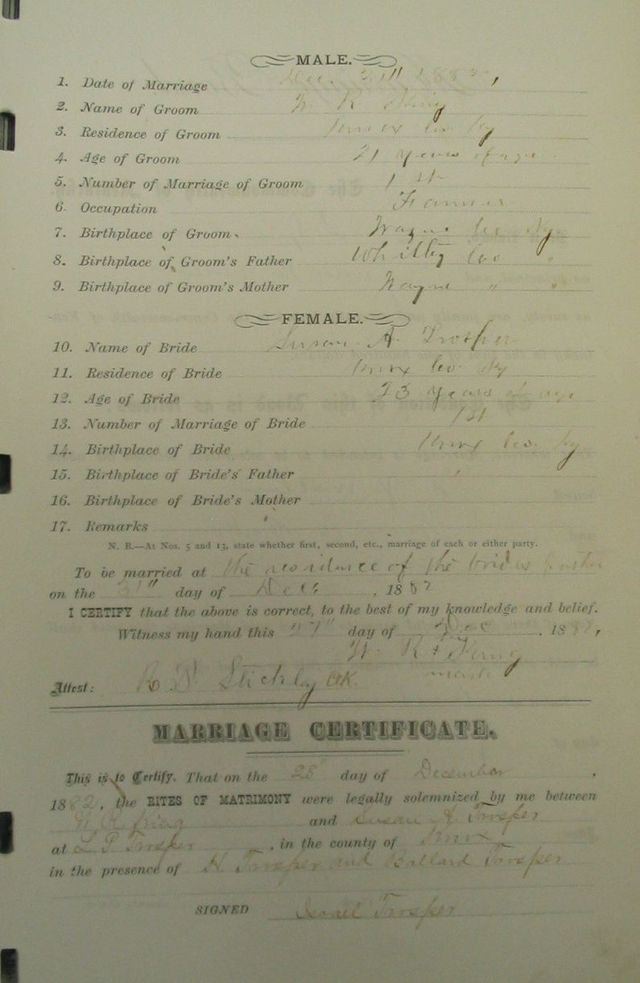 MALE.
1. Date of Marriage Dec.
2. Name of Groom W R King
3. Residence of Groom Knox Co Ky
4. Age of Groom 21 years of age
5. Number of Marriage of Groom 1st
6. Occupation Farmer
7. Birthplace of Groom Wayne Co Ky
8. Birthplace of Groom's Father Whitley Co "
9. Birthplace of Groom's Mother Wayne " "
FEMALE.
10. Name of Bride Susan A Trosper
11. Residence of Bride Knox Co Ky
12. Age of Bride 23 years of age
13. Number of Marriage of Bride 1st
14. Birthplace of Bride Knox Co. Ky
15. Birthplace of Bride's Father "
16. Birthplace of Bride's Mother
17. Remarks
N. B.—At Nos. 5 and 13, state whether first, second, etc., marriage of each or either party.
To be married at the residence of the brides father
on the day of Dec , 1882
I CERTIFY that the above is correct, to the best of my knowledge and belief.
Witness my hand this 27" day of Dec , 1882,
W R + King
mark
Attest: Stickly CK.
MARRIAGE CERTIFICATE.
This is to Certify, That on the 28 day of December ,
1882, the RITES OF MATRIMONY were legally solemnized by me between
W R King and Susan A Trosper
at L P Trosper , in the county of Knox
in the presence of H Trosper and Ballard Trosper
SIGNED Israel Trosper